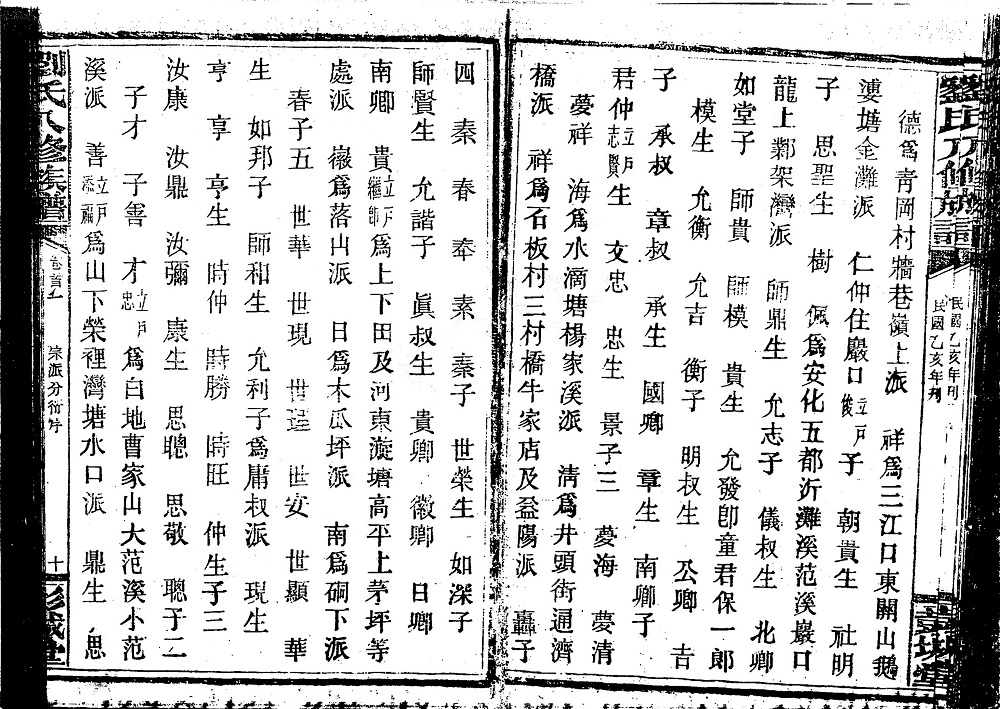 民國乙亥年刊
民國乙亥年刊
德爲青岡村牆巷嶺上派 祥爲三江口東關山鵝
漊塘金灘派 仁仲住巖口立戶俊子 朝貴生 社明
子 思聖生 樹 佩爲安化五都沂灘溪范溪巖口
龍上鄴架灣派 師鼎生 允志子 儀叔生 北卿
如堂子 師貴 師模 貴生 允發卽童君保一郎
模生 允衡 允吉 衡子 明叔生 公卿 吉
子 承叔 章叔 承生 國卿 章生 南卿子
君仲立戶志賢生 文忠 忠生 景子三 夢海 夢清
夢祥 海爲水滴塘楊家溪派 清爲井頭街通濟
橋派 祥爲石板村三村橋牛家店及益陽派 聶子
四 秦 春 奉 素 秦子 世榮生 如深子
師賢生 允諧子 眞叔生 貴卿 徽卿 日卿
南卿 貴立戶繼師爲上下田及河東漩塘高平上茅坪等
處派 徽爲落出派 日爲木瓜坪派 南爲硐下派
春子五 世華 世現 世達 世安 世顯 華
生 如邦子 師和生 允利子爲庸叔派 現生
亨 享 亨生 時仲 時勝 時旺 仲生子三
汝康 汝鼎 汝彌 康生 思聰 思敬 聰子二
子才 子善 才立戶忠爲白地曹家山大范溪小范
溪派 善立戶添福爲山下榮裡灣塘水口派 鼎生 思
劉氏八修族譜
卷首
宗派分衍序
十
彭城堂